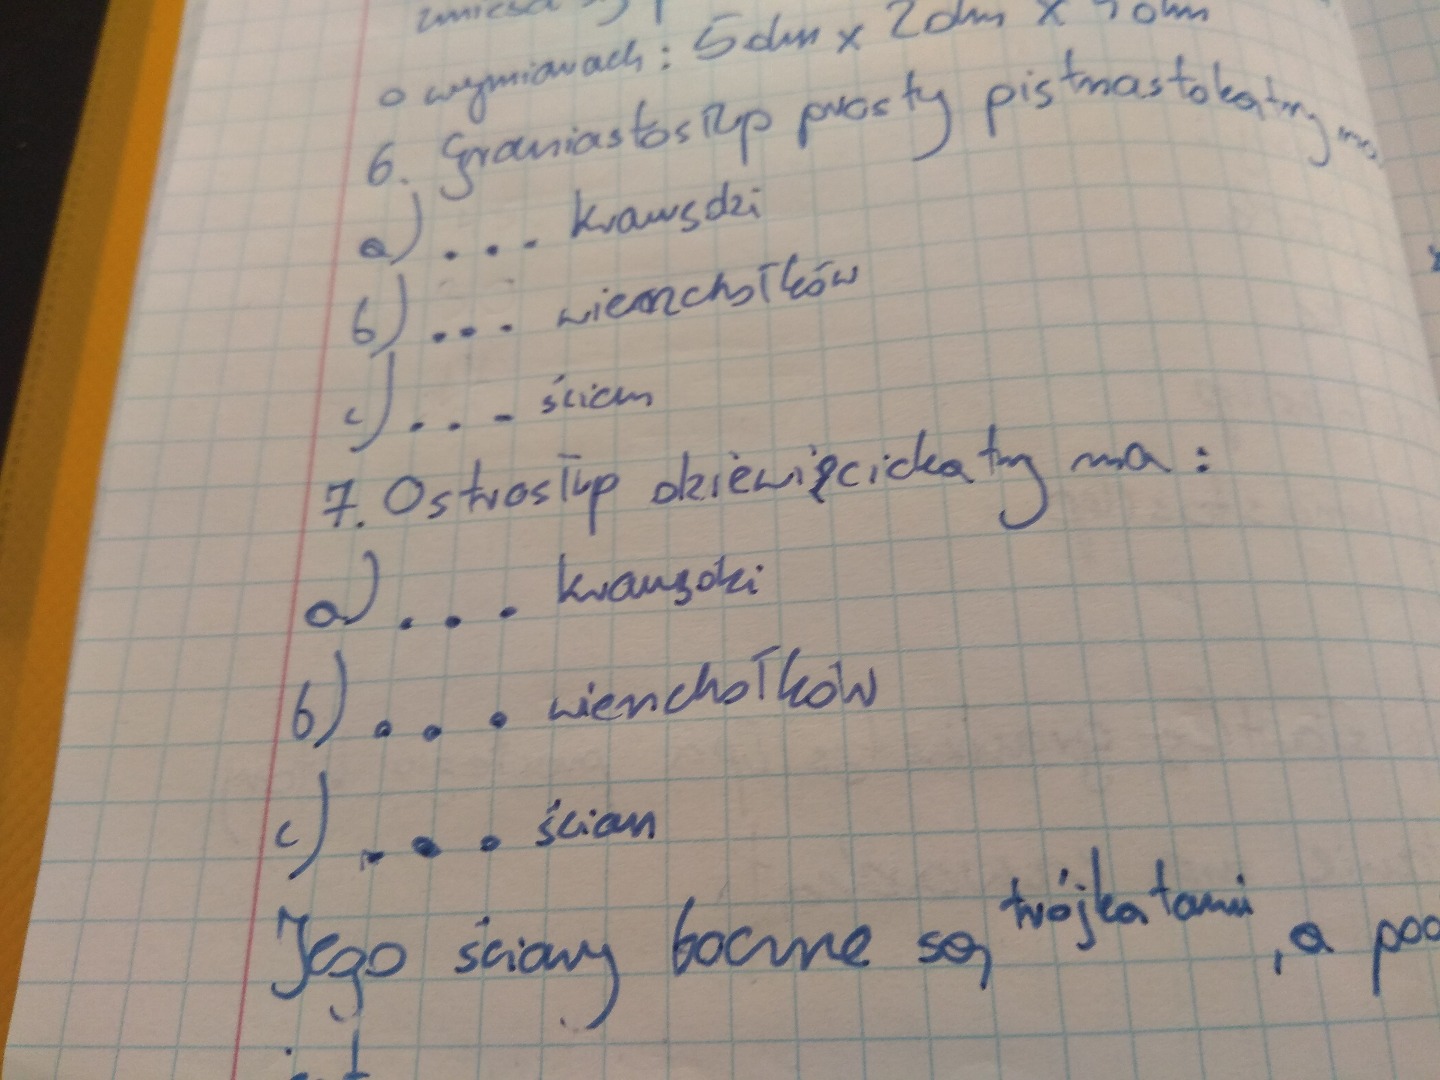 o wymiarach: 5dm x 2dm x 4dm
6. Graniastosłup prosty piętnastokątny ma
a) ... krawędzi
b) ... wierzchołków
c) ... ścian
7. Ostrosłup dziewięciokątny ma:
a) ... krawędzi
b) ... wierzchołków
c) ... ścian
Jego ściany boczne są trójkątami, a pod